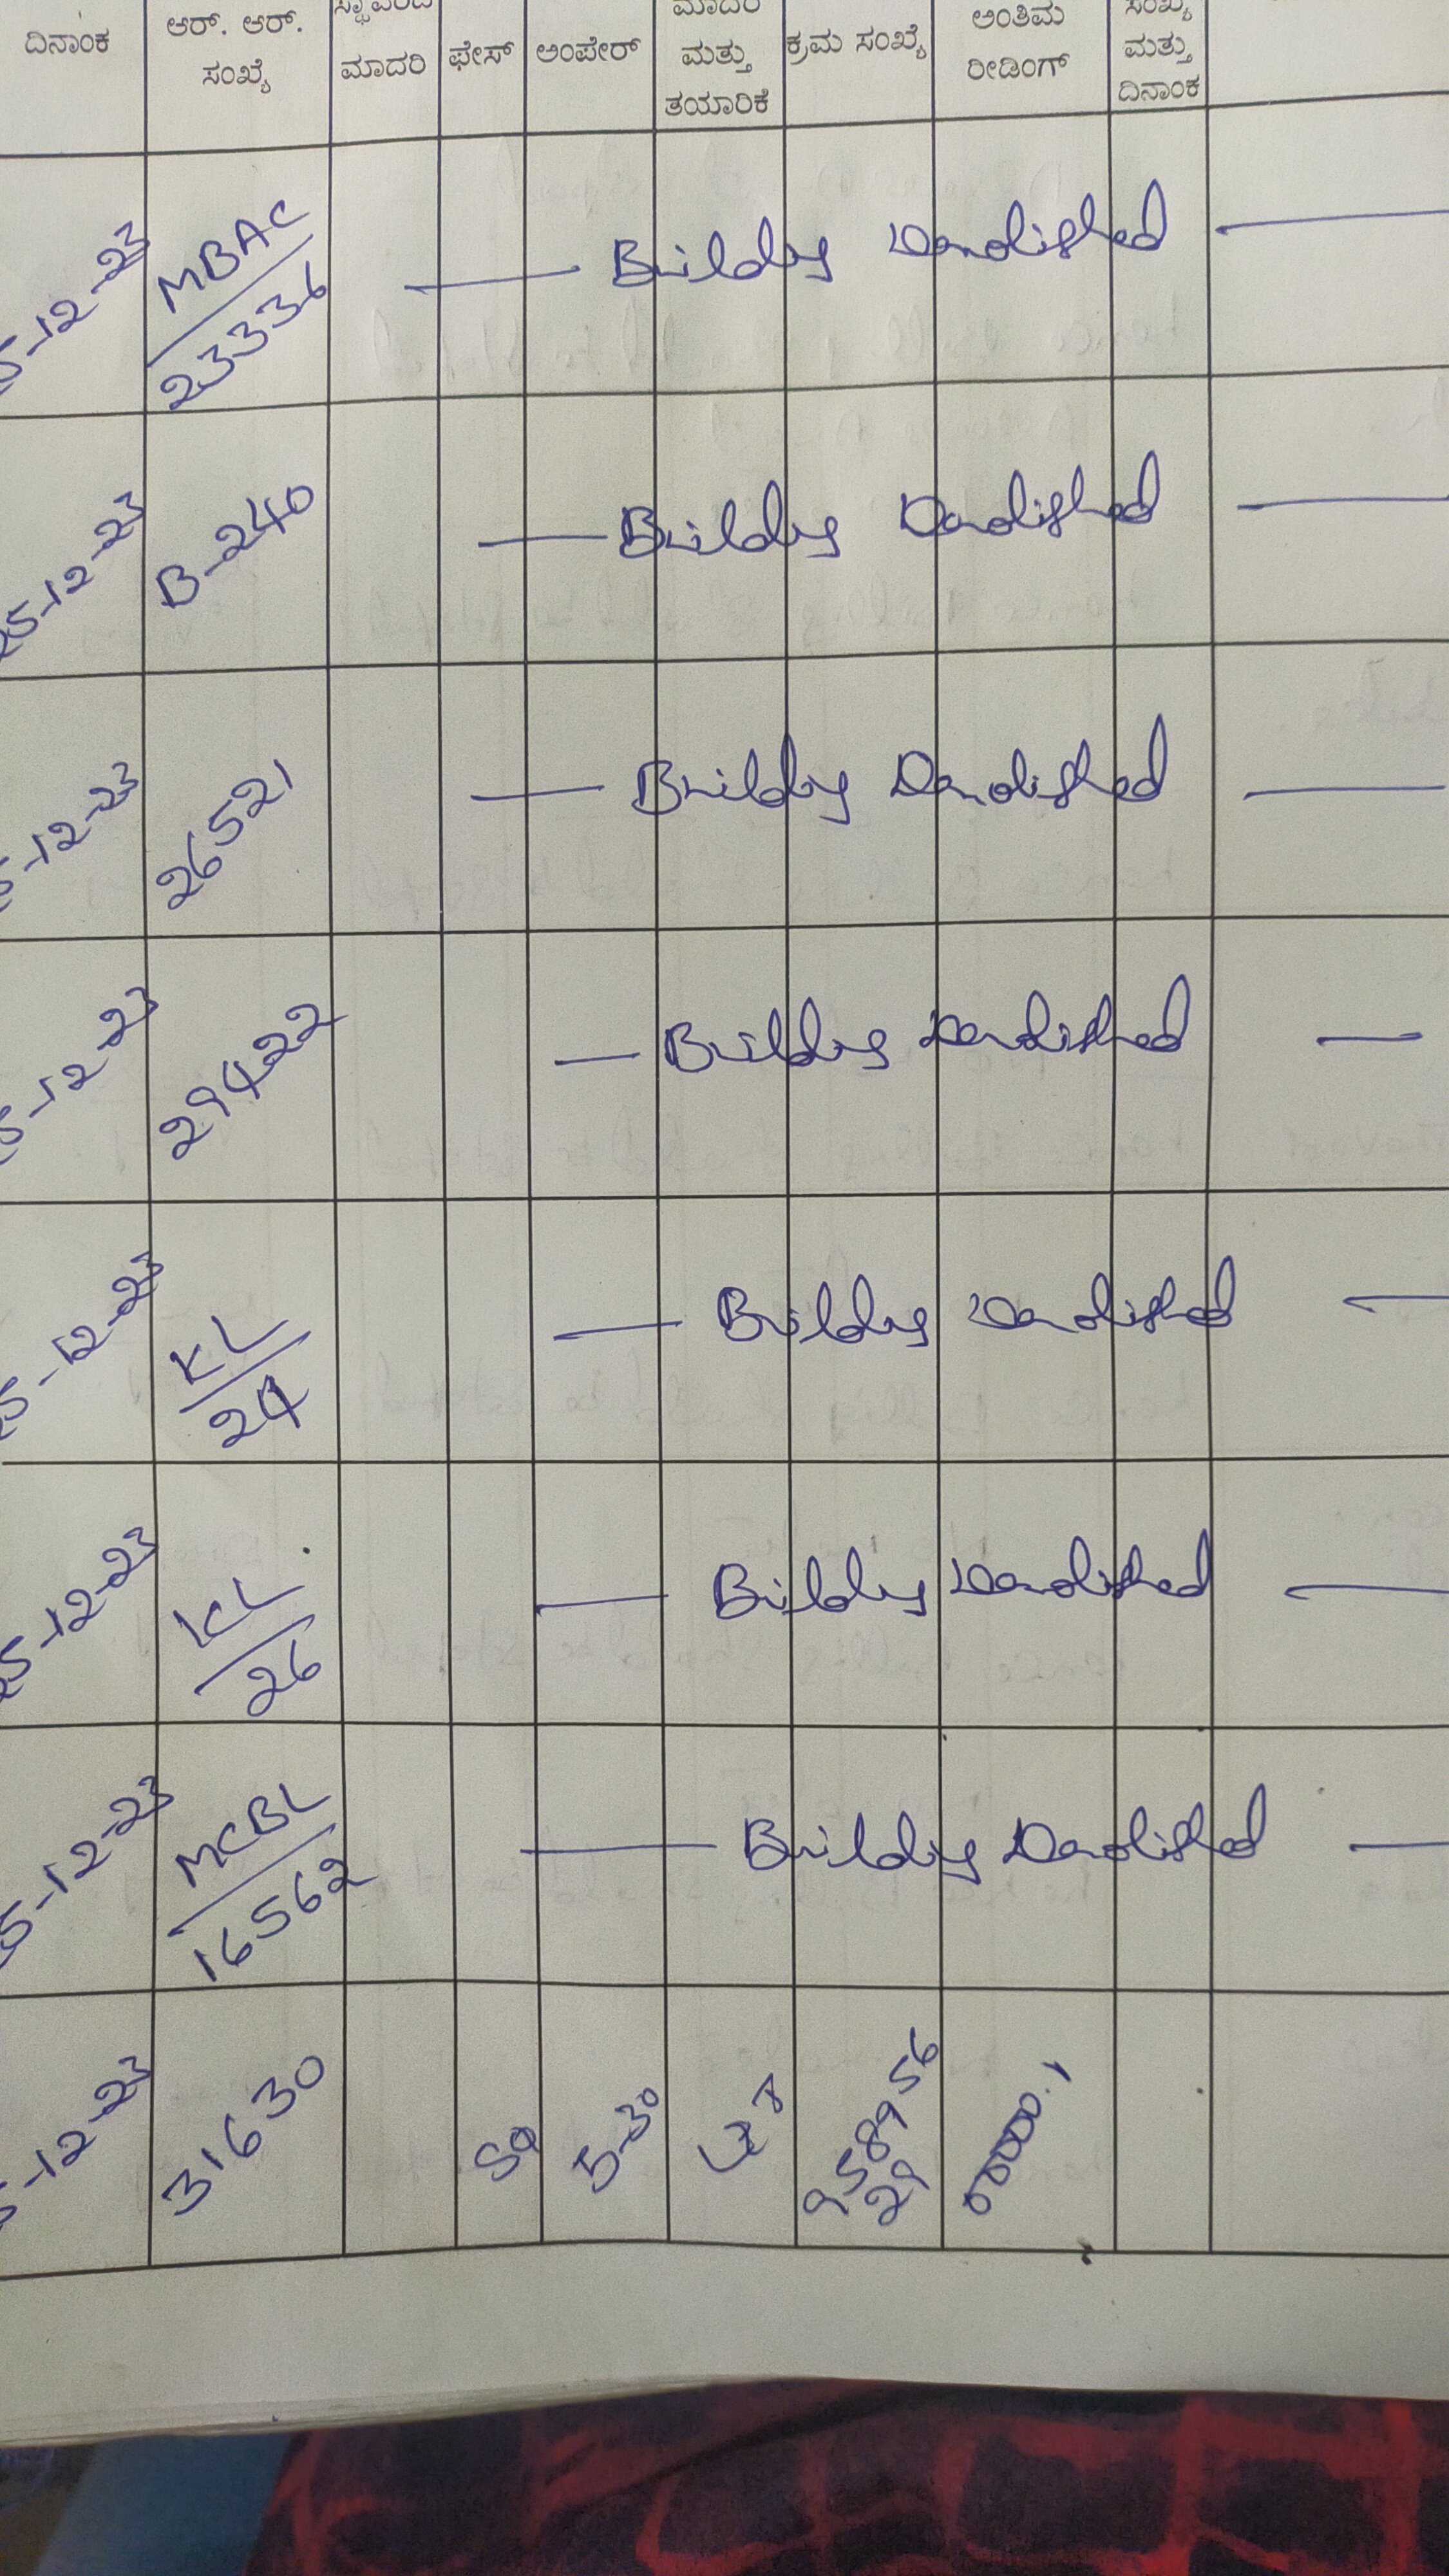 ದಿನಾಂಕ ಆರ್. ಆರ್. ಸಂಖ್ಯೆ ಮಾದರಿ ಫೇಸ್ ಅಂಪೇರ್ ಮಾದರಿ ಮತ್ತು ತಯಾರಿಕೆ ಕ್ರಮ ಸಂಖ್ಯೆ ಅಂತಿಮ ರೀಡಿಂಗ್ ಸಂಖ್ಯೆ ಮತ್ತು ದಿನಾಂಕ
5-12-23 MBAC 23336 — Building Demolished —
25-12-23 B-240 — Building Demolished —
5-12-23 26521 — Building Demolished —
5-12-23 29422 — Building Demolished —
25-12-23 KL 24 — Building Demolished —
25-12-23 KL 26 — Building Demolished —
5-12-23 MCBL 16562 — Building Demolished —
5-12-23 31630 5-30 958956 29